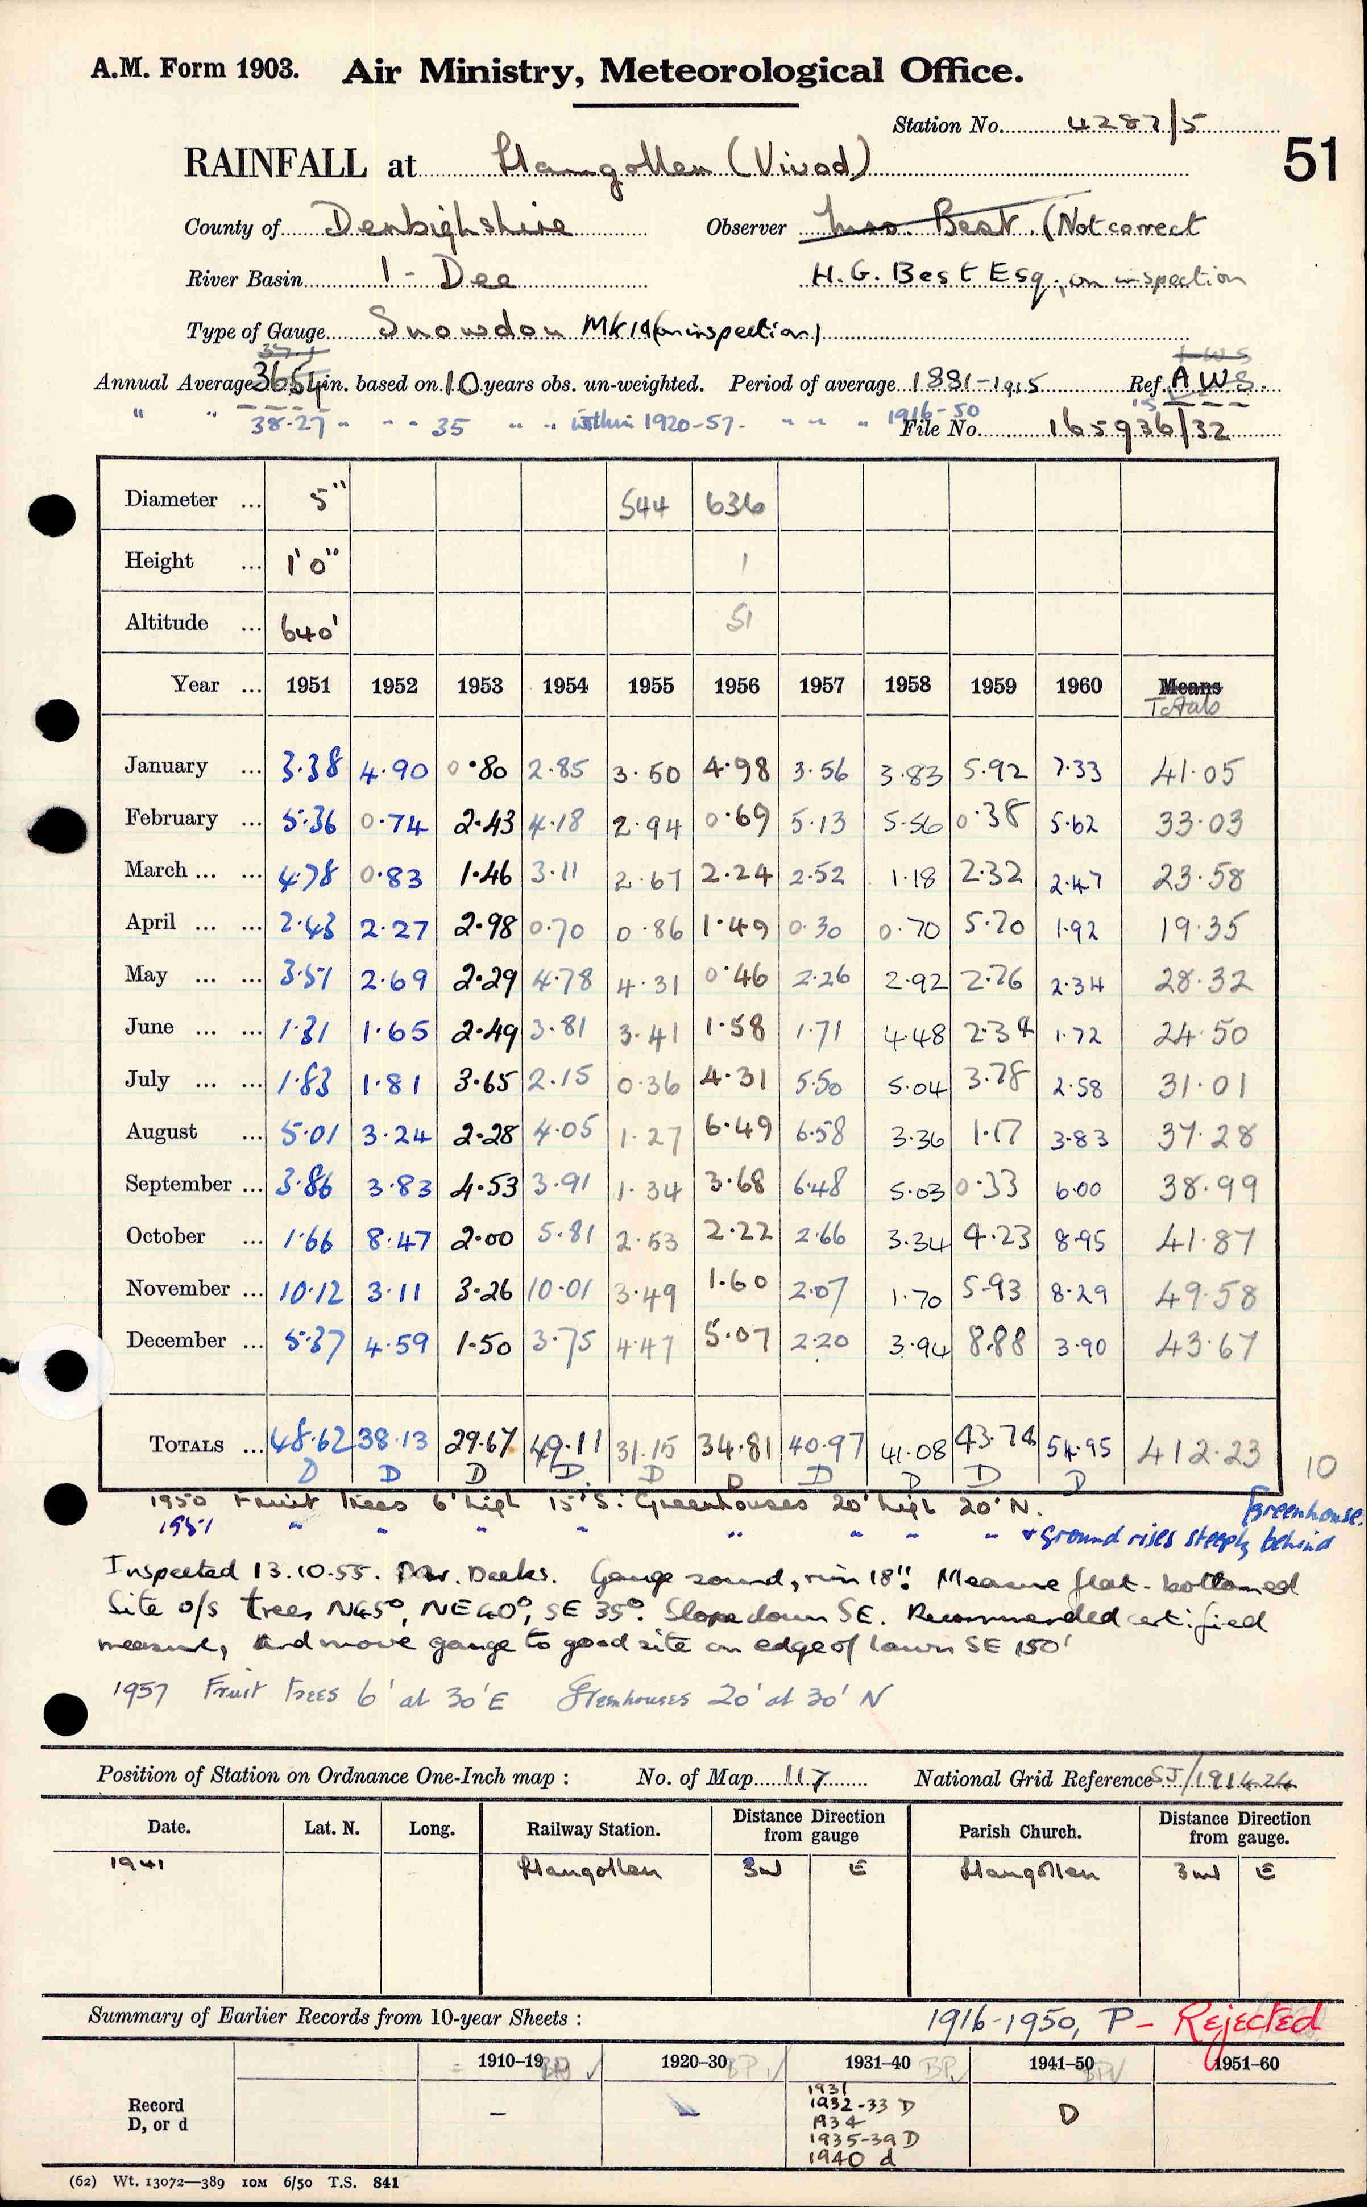 A.M. Form 1903. Air Ministry, Meteorological Office.
Station No. 4287/5
51
RAINFALL at Llangollen (Vivod)
County of Denbighshire Observer Mrs. Best. (Not correct
River Basin 1 - Dee H. G. Best Esq, on inspection
Type of Gauge Snowdon Mk 1a (on inspection)
Annual Average 36.54 in. based on 10 years obs. un-weighted. Period of average 1881-1915 Ref. A.W.S.
" " 38.27 " " " 35 " " within 1920-57. " " " 1916-50
File No. 165936/32
Diameter ... 5" 544 636
Height ... 1'0" 1
Altitude ... 640' 51
Year ... 1951 1952 1953 1954 1955 1956 1957 1958 1959 1960 Means
Totals
January ... 3.38 4.90 0.80 2.85 3.50 4.98 3.56 3.83 5.92 7.33 41.05
February ... 5.36 0.74 2.43 4.18 2.94 0.69 5.13 5.56 0.38 5.62 33.03
March ... ... 4.78 0.83 1.46 3.11 2.67 2.24 2.52 1.18 2.32 2.47 23.58
April ... ... 2.43 2.27 2.98 0.70 0.86 1.49 0.30 0.70 5.70 1.92 19.35
May ... ... 3.51 2.69 2.29 4.78 4.31 0.46 2.26 2.92 2.76 2.34 28.32
June ... ... 1.31 1.65 2.49 3.81 3.41 1.58 1.71 4.48 2.34 1.72 24.50
July ... ... 1.83 1.81 3.65 2.15 0.36 4.31 5.50 5.04 3.78 2.58 31.01
August ... 5.01 3.24 2.28 4.05 1.27 6.49 6.58 3.36 1.17 3.83 37.28
September ... 3.86 3.83 4.53 3.91 1.34 3.68 6.48 5.03 0.33 6.00 38.99
October ... 1.66 8.47 2.00 5.81 2.53 2.22 2.66 3.34 4.23 8.95 41.87
November ... 10.12 3.11 3.26 10.01 3.49 1.60 2.07 1.70 5.93 8.29 49.58
December ... 5.37 4.59 1.50 3.75 4.47 5.07 2.20 3.94 8.88 3.90 43.67
TOTALS ... 48.62 38.13 29.67 49.11 31.15 34.81 40.97 41.08 43.74 54.95 412.23 10
D D D D D D D D D D
1950 Fruit Trees 6' high 15' S. Greenhouses 20' high 20' N.
Greenhouse.
1951 " " " " " " " " & ground rises steeply behind
Inspected 13.10.55. Mr. Deeks. Gauge sound, rim 18". Measure flat-bottomed
Site o/s trees N45°, NE40°, SE 35°. Slope down SE. Recommended certified
measure, and move gauge to good site on edge of lawn SE 150'
1957 Fruit trees 6' at 30' E Greenhouses 20' at 30' N
Position of Station on Ordnance One-Inch map : No. of Map 117 National Grid Reference SJ/191424
Date. Lat. N. Long. Railway Station. Distance Direction from gauge Parish Church. Distance Direction from gauge.
1941 Llangollen 3m E Llangollen 3m E
Summary of Earlier Records from 10-year Sheets : 1916-1950, P - Rejected
1910-19 1920-30 1931-40 1941-50 1951-60
Record
D, or d
– – D
1931
1932-33 D
1934
1935-39 D
1940 d
(62) Wt. 13072—389 10M 6/50 T.S. 841